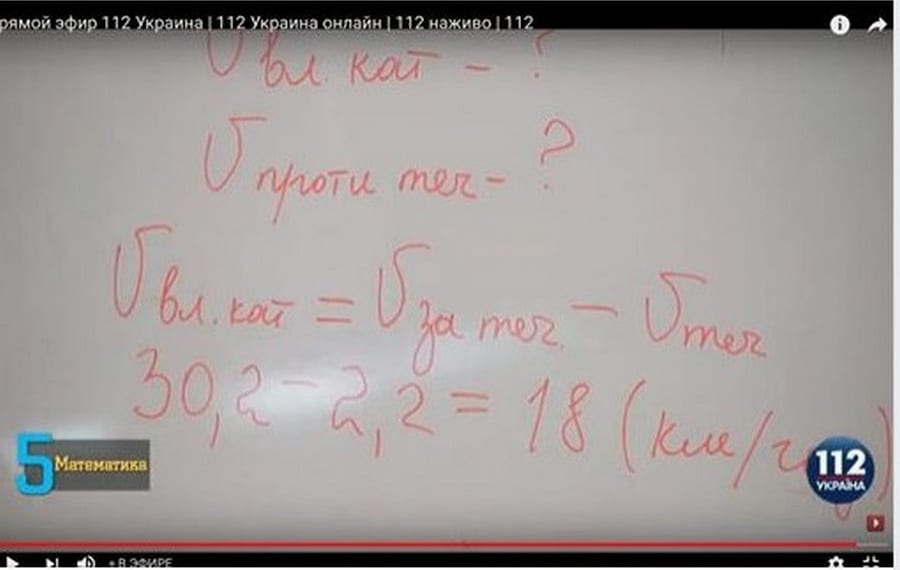 рямой эфир 112 Украина | 112 Украина онлайн | 112 наживо | 112
V вл. кат - ?
V проти теч - ?
V вл. кат = V за теч. - V теч
30,2 - 2,2 = 18 (км/г
5 Математика
112
УКРАЇНА
• В ЭФИРЕ